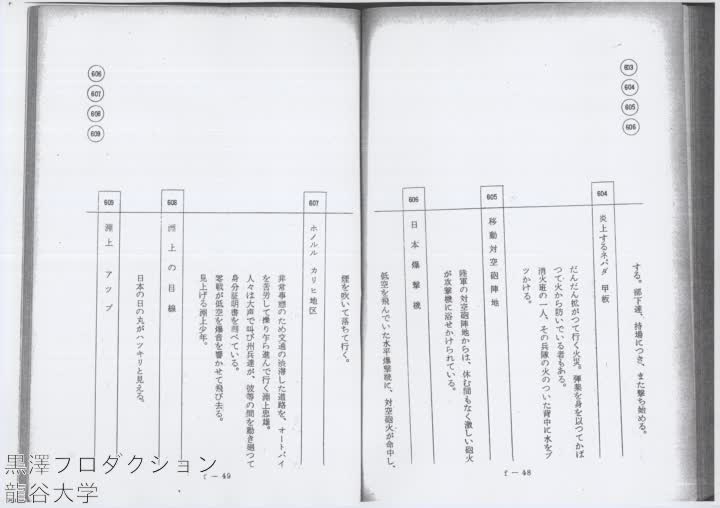 603
604
605
606
する。部下達、持場につき、また撃ち始める。
604
炎上するネバダ 甲板
だんだん拡がつて行く火災。弾薬を身を以つてかば
つて火から防いでいる者もある。
消火班の一人、その兵隊の火のついた背中に水をブ
ツかける。
605
移動対空砲陣地
陸軍の対空砲陣地からは、休む間もなく激しい砲火
が攻撃機に浴せかけられている。
606
日本爆撃機
低空を飛んでいた水平爆撃機に、対空砲火が命中し、
f－48
606
607
608
609
煙を吹いて落ちて行く。
607
ホノルル カリヒ地区
非常事態のため交通の渋滞した道路を、オートバイ
を苦労して操り乍ら進んで行く淵上忠雄。
人々は大声で叫び州兵達が、彼等の間を動き廻つて
身分証明書を調べている。
零戦が低空を爆音を響かせて飛び去る。
見上げる淵上少年。
608
淵上の目線
日本の日の丸がハツキリと見える。
609
淵上 アツプ
f－49
黒澤プロダクション
龍谷大学